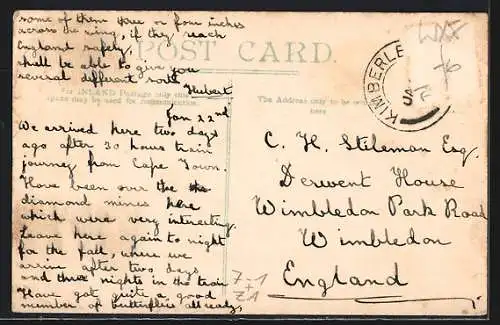 some of them three or four inches
across the wing, if they reach
England safely,
shall be able to give you
several different sorts
Hubert
POST CARD.
For INLAND Postage only this
space may be used for communication.
The Address only to be
here
KIMBERLE
Jan 22nd
We arrived here two days
ago after 30 hours train
journey from Cape Town.
Have been over the
diamond mines here
which were very interesting
Leave here again to night
for the fall, where we
arrive after two days
and three nights in the train
Have got quite a good
number of butterflies already,
C. H. Stileman Esq.
Derwent House
Wimbledon Park Road
Wimbledon
England
7-1
+
Z1